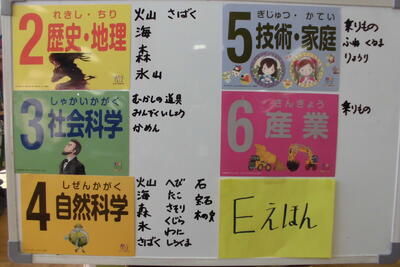 れきし・ちり
2 歴史・地理
火山 さばく
海
森
氷山
しゃかいかがく
3 社会科学
むかしの道具
みんぞくいしょう
かめん
しぜんかがく
4 自然科学
火山 へび 石
海 たこ 宝石
森 さそり 木の実
氷 くじら
わに
さばく しろくま
ぎじゅつ・かてい
5 技術・家庭
乗りもの
ふね くるま
りょうり
さんぎょう
6 産業
乗りもの
Eえほん